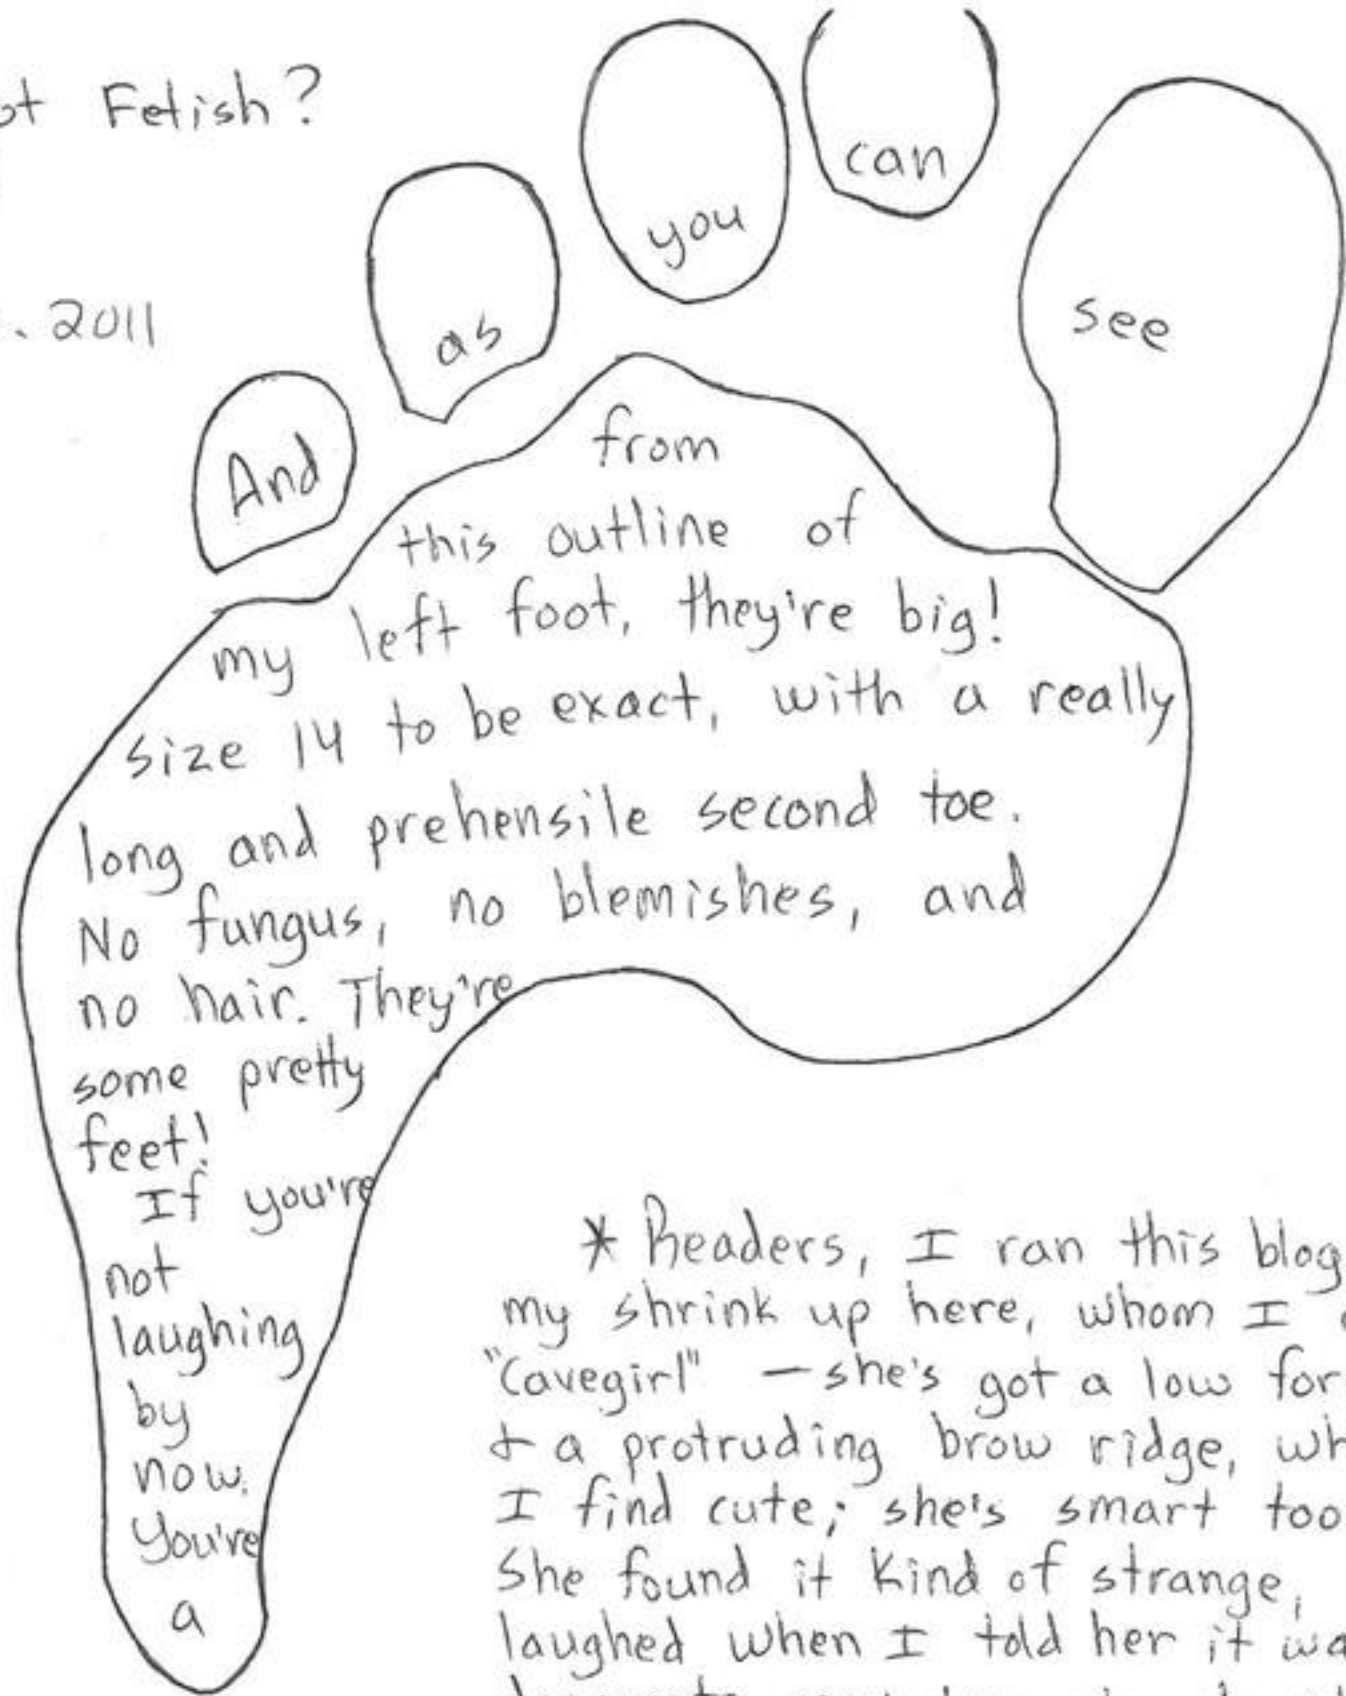 Fetish?
. 2011
And
as
you
can
see
from
this outline of
my left foot, they're big!
size 14 to be exact, with a really
long and prehensile second toe.
No fungus, no blemishes, and
no hair. They're
some pretty
feet!
If you're
not
laughing
by
now,
You're
a
* Readers, I ran this blog
my shrink up here, whom I
"Cavegirl" – she's got a low
& a protruding brow ridge,
I find cute; she's smart too
She found it kind of strange,
laughed when I told her it